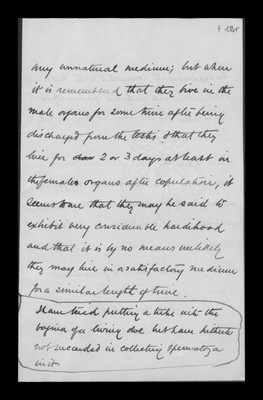 f. 125
any unnatural medium; but when
it is remembered that they live in the
male organs for some time after being
discharged from the testis & that they
live for 2 or 3 days at least in
the female organs after copulation, it
seems to me that they may be said to
exhibit very considerable hardihood
and that it is by no means unlikely
they may live in a satisfactory medium
for a similar length of time.
I have tried putting a tube into the
vagina of a living doe but have hitherto
not succeeded in collecting spermatozoa
in it